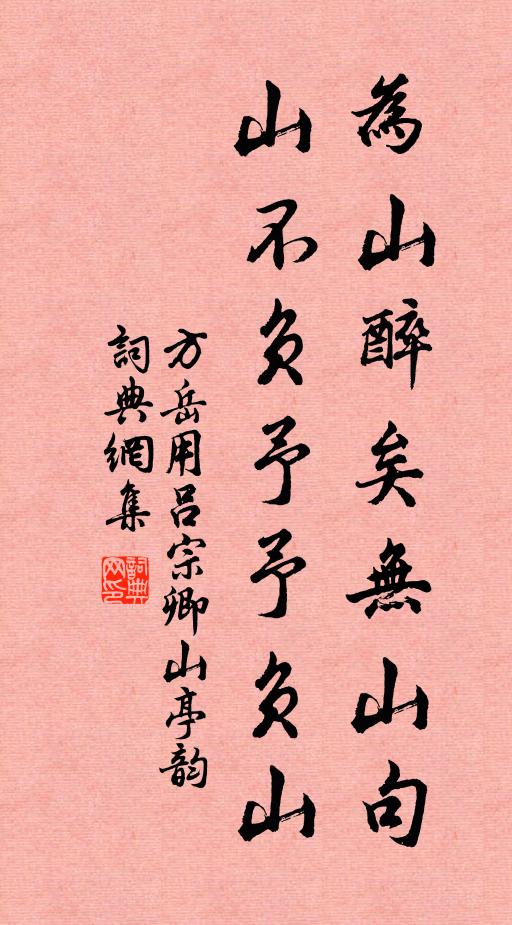 為山醉矣無山句
山不負予予負山
方岳用呂宗卿山亭韵
詞典網集
詞典网印